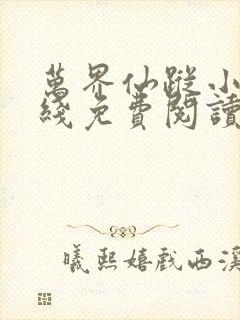 萬界仙蹤小
綫免費閱讀
曦熙嬉戲西溪